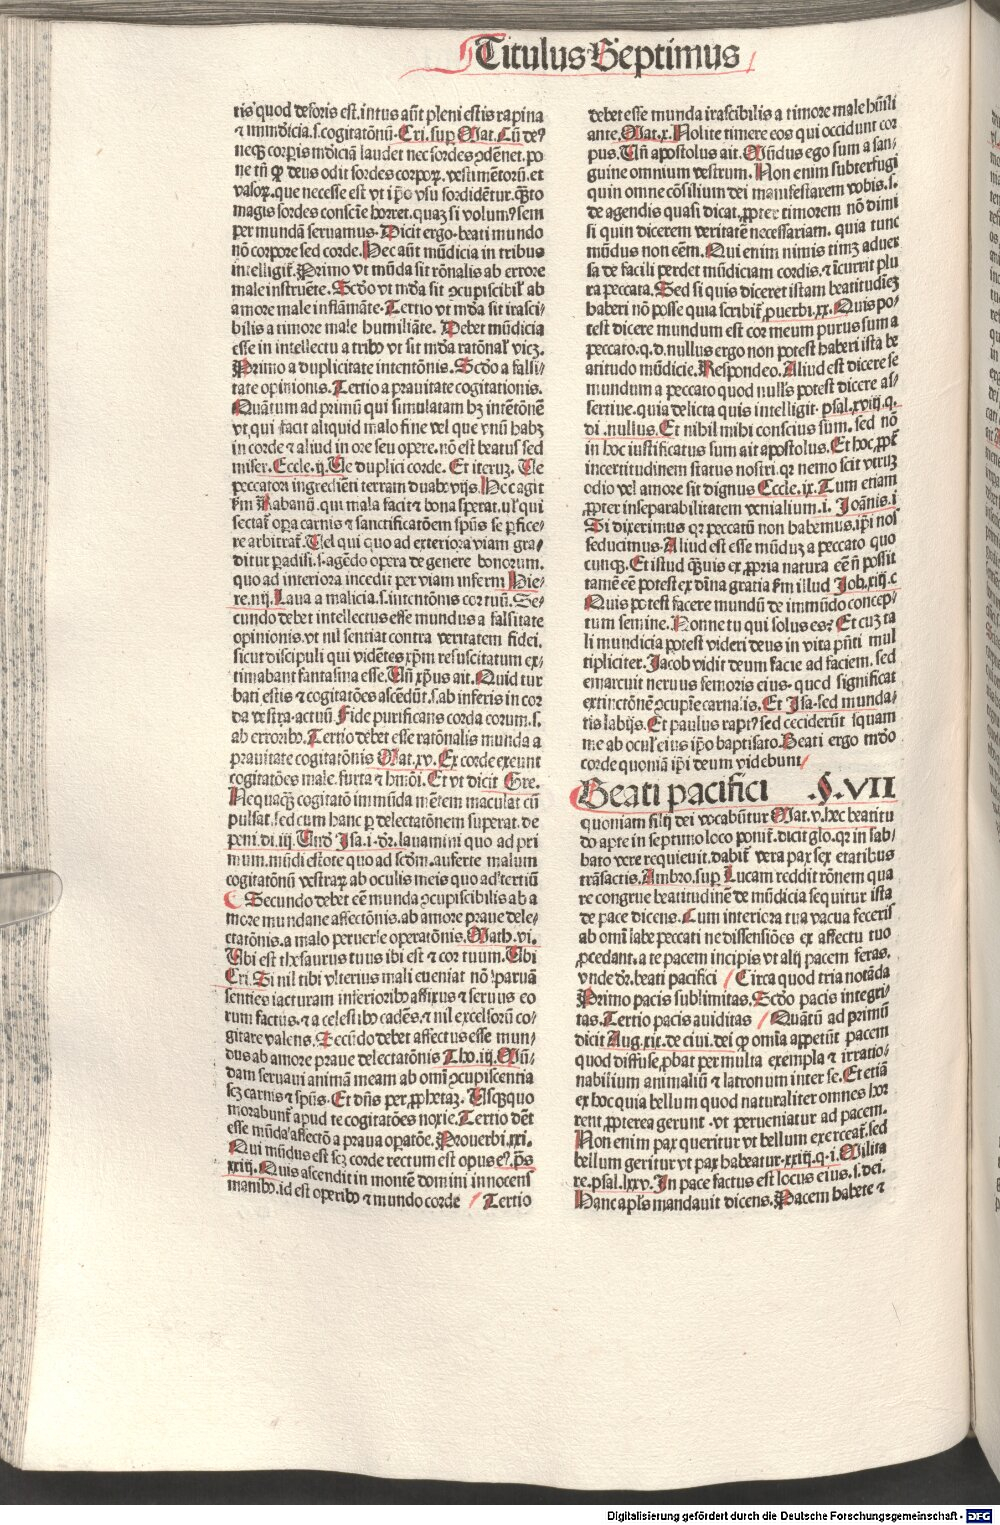 Titulus Septimus
tis quod deforis est. intus aūt pleni estis rapina
⁊ immūdicia. s. cogitatōnū. Cri. sup Mat. Cū de⁹
neq̄ corpis mūdiciā laudet nec sordes ꝯdēnet. po
ne tn̄ ꝙ deus odit sordes corporꝝ. vestimētorū. et
vasorꝝ. que necesse est vt ip̄o vsu sordidētur. q̄ꝫto
magis sordes consciē horret. quaꝫ si volum⁹ sem
per mundā seruamus. Dicit ergo. beati mundo
nō corpore sed corde. Hec aūt mūdicia in tribus
intelligit̄. Primo vt mūda sit rōnalis ab errore
male instruēte. Scd̄o vt mūda sit ꝯcupiscibil̓ ab
amore male inflāmāte. Tertio vt mūda sit irasci-
bilis a timore male humiliāte. Debet mūdicia
esse in intellectu a tribꝰ vt sit mūda ratōnal̓ vicꝫ.
Primo a duplicitate intentōnis. Scd̄o a falsi-
tate opinionis. Tertio a prauitate cogitationis.
Quātum ad primū qui simulatam hꝫ intētōnē
vt qui facit aliquid malo fine vel que vnū habꝫ
in corde ⁊ aliud in ore seu opere. nō est beatus sed
miser. Eccle. ij. Ue duplici corde. Et iteruꝫ. Ue
peccatori ingrediēti terram duabꝰ vijs. Hec agit
fm̄ Rabanū. qui mala facit ⁊ bona sperat. ul̓ qui
sectat̄ opa carnis ⁊ sanctificatōem sp̄us se pfice-
re arbitrat̄. Uel qui quo ad exteriora viam gra-
ditur padisi. s. agēdo opera de genere bonorum.
quo ad interiora incedit per viam inferni Hie-
re. iiij. Laua a malicia. s. intentōnis cor tuū. Se-
cundo debet intellectus esse mundus a falsitate
opinionis. vt nil sentiat contra veritatem fidei.
sicut discipuli qui vidētes xp̄m resuscitatum ex-
timabant fantasma esse. Un̄ xp̄us ait. Quid tur
bati estis ⁊ cogitatōes ascēdūt. s. ab inferis in cor
da vestra. actuū Fide purificans corda eorum. s.
ab erroribꝰ. Tertio debet esse ratōnalis munda a
prauitate cogitatōnis Mat. xv. Ex corde exeunt
cogitatōes male. furta ⁊ hmōi. Et vt dicit Gre.
Nequaq̄ꝫ cogitatō immūda mētem maculat cū
pulsat. sed cum hanc p delectatōnem superat. de
peni. di. iij. Und̄ Isa. i. dr̄. lauamini quo ad pri
mum. mūdi estote quo ad scdm̄. auferte malum
cogitatōnū vestrarꝝ ab oculis meis quo ad tertiū
Secundo debet eē munda ꝯcupiscibilis ab a
more mundane affectōnis. ab amore praue dele-
ctatōnis. a malo peruerse operatōnis. Math. vi.
Ubi est thesaurus tuus ibi est ⁊ cor tuum. Ubi
Cri. Si nil tibi vlterius mali eueniat nō ꝑparuā
senties iacturam inferioribꝰ affixus ⁊ seruus eo
rum factus. ⁊ a celestibꝰ cadēs. ⁊ nil excelsorū co-
gitare valens. Secūdo debet affectus esse mun-
dus ab amore praue delectatōnis Tho. iij. Mū-
dam seruaui animā meam ab omi ꝯcupiscentia
scꝫ carnis ⁊ sp̄us. Et dn̄s per ꝓphetaꝫ. Usq̄quo
morabunt̄ apud te cogitatōes noxie. Tertio dēt
esse mūda affectō a praua opatōe. Prouerbi. xxi.
Qui mūdus est scꝫ corde rectum est opus e⁹. ps̄
xxiij. Quis ascendit in montē domini innocens
manibꝰ. id est operibꝰ ⁊ mundo corde Tertio
debet esse munda irascibilis a timore male hūili
ante. Mat. x. Nolite timere eos qui occidunt cor
pus. Un̄ apostolus ait. Mūdus ego sum a san-
guine omnium vestrum. Non enim subterfugi
quin omne cōsilium dei manifestarem vobis. s.
de agendis quasi dicat. ꝓpter timorem nō dimi
si quin dicerem veritatē necessariam. quia tunc
mūdus non eēm. Qui enim nimis timꝫ aduer
sa de facili perdet mūdiciam cordis. ⁊ īcurrit plu
ra peccata. Sed si quis diceret istam beatitudinēꝫ
haberi nō posse quia scribit̄ puerbi. xx. Quis po-
test dicere mundum est cor meum purus sum a
peccato. q. d. nullus ergo non potest haberi ista be
atitudo mūdicie. Respondeo. Aliud est dicere se
mundum a peccato quod nullꝰ potest dicere as-
sertiue. quia delicta quis intelligit. psal. xviij. q.
di. nullius. Et nihil mihi conscius sum. sed nō
in hoc iustificatus sum ait apostolus. Et hoc ꝓpt̄
incertitudinem status nostri. qꝛ nemo scit vtruꝫ
odio vel amore sit dignus Eccle. ix. Tum etiam
ꝓpter inseparabilitatem venialium. i. Joānis. i
Si dixerimus qꝛ peccatū non habemus. ip̄i nos
seducimus. Aliud est esse mūduꝫ a peccato quo
cunqꝫ. Et istud q̄ꝫuis ex ꝓpria natura eē nō possit
tamē eē potest ex diīna gratia fm̄ illud Job. xiiij. c
Quis potest facere mundū de immūdo concep-
tum semine. Nonne tu qui solus es⁊ Et cuꝫ ta
li mundicia potest videri deus in vita pn̄ti mul
tipliciter. Jacob vidit deum facie ad faciem. sed
emarcuit neruus femoris eius. quod significat
extinctōnē ꝯcupiē carnalis. Et Isa. sed munda-
tis labijs. Et paulus rapt⁹ sed ceciderūt squam
me ab ocul̓ eius ip̄o baptisato. Beati ergo mūdo
corde quoniā ip̄i deum videbunt
Beati pacifici .§. VII
quoniam filij dei vocabūtur Mat. v. hec beatitu
do apte in septimo loco ponit̄. dicit glo. qꝛ in sab-
bato vere requieuit. dabit̄ vera pax sex etatibus
trāsactis. Ambro. sup Lucam reddit rōnem qua
re congrue beatitudinē de mūdicia sequitur ista
de pace dicens. Cum interiora tua vacua feceris
ab omi labe peccati ne dissensiōes ex affectu tuo
ꝓcedant. a te pacem incipis vt alij pacem feras.
vnde dr̄. beati pacifici Circa quod tria notāda
Primo pacis sublimitas. Scd̄o pacis integri-
tas. Tertio pacis auiditas Quātū ad primū
dicit Aug. xix. de ciui. dei ꝙ omia appetūt pacem
quod diffuse ꝓbat per multa exempla ⁊ irratio-
nabilium animaliū ⁊ latronum inter se. Et etiā
ex hoc quia bellum quod naturaliter omnes hor
rent ꝓpterea gerunt. vt perueniatur ad pacem.
Non enim pax queritur vt bellum exerceat̄. sed
bellum geritur vt pax habeatur. xxiij. q. i. Milita
re. psal. lxxv. In pace factus est locus eius. s. dei.
Hanc apl̓s mandauit dicens. Pacem habete ⁊
Digitalisierung gefördert durch die Deutsche Forschungsgemeinschaft - DFG